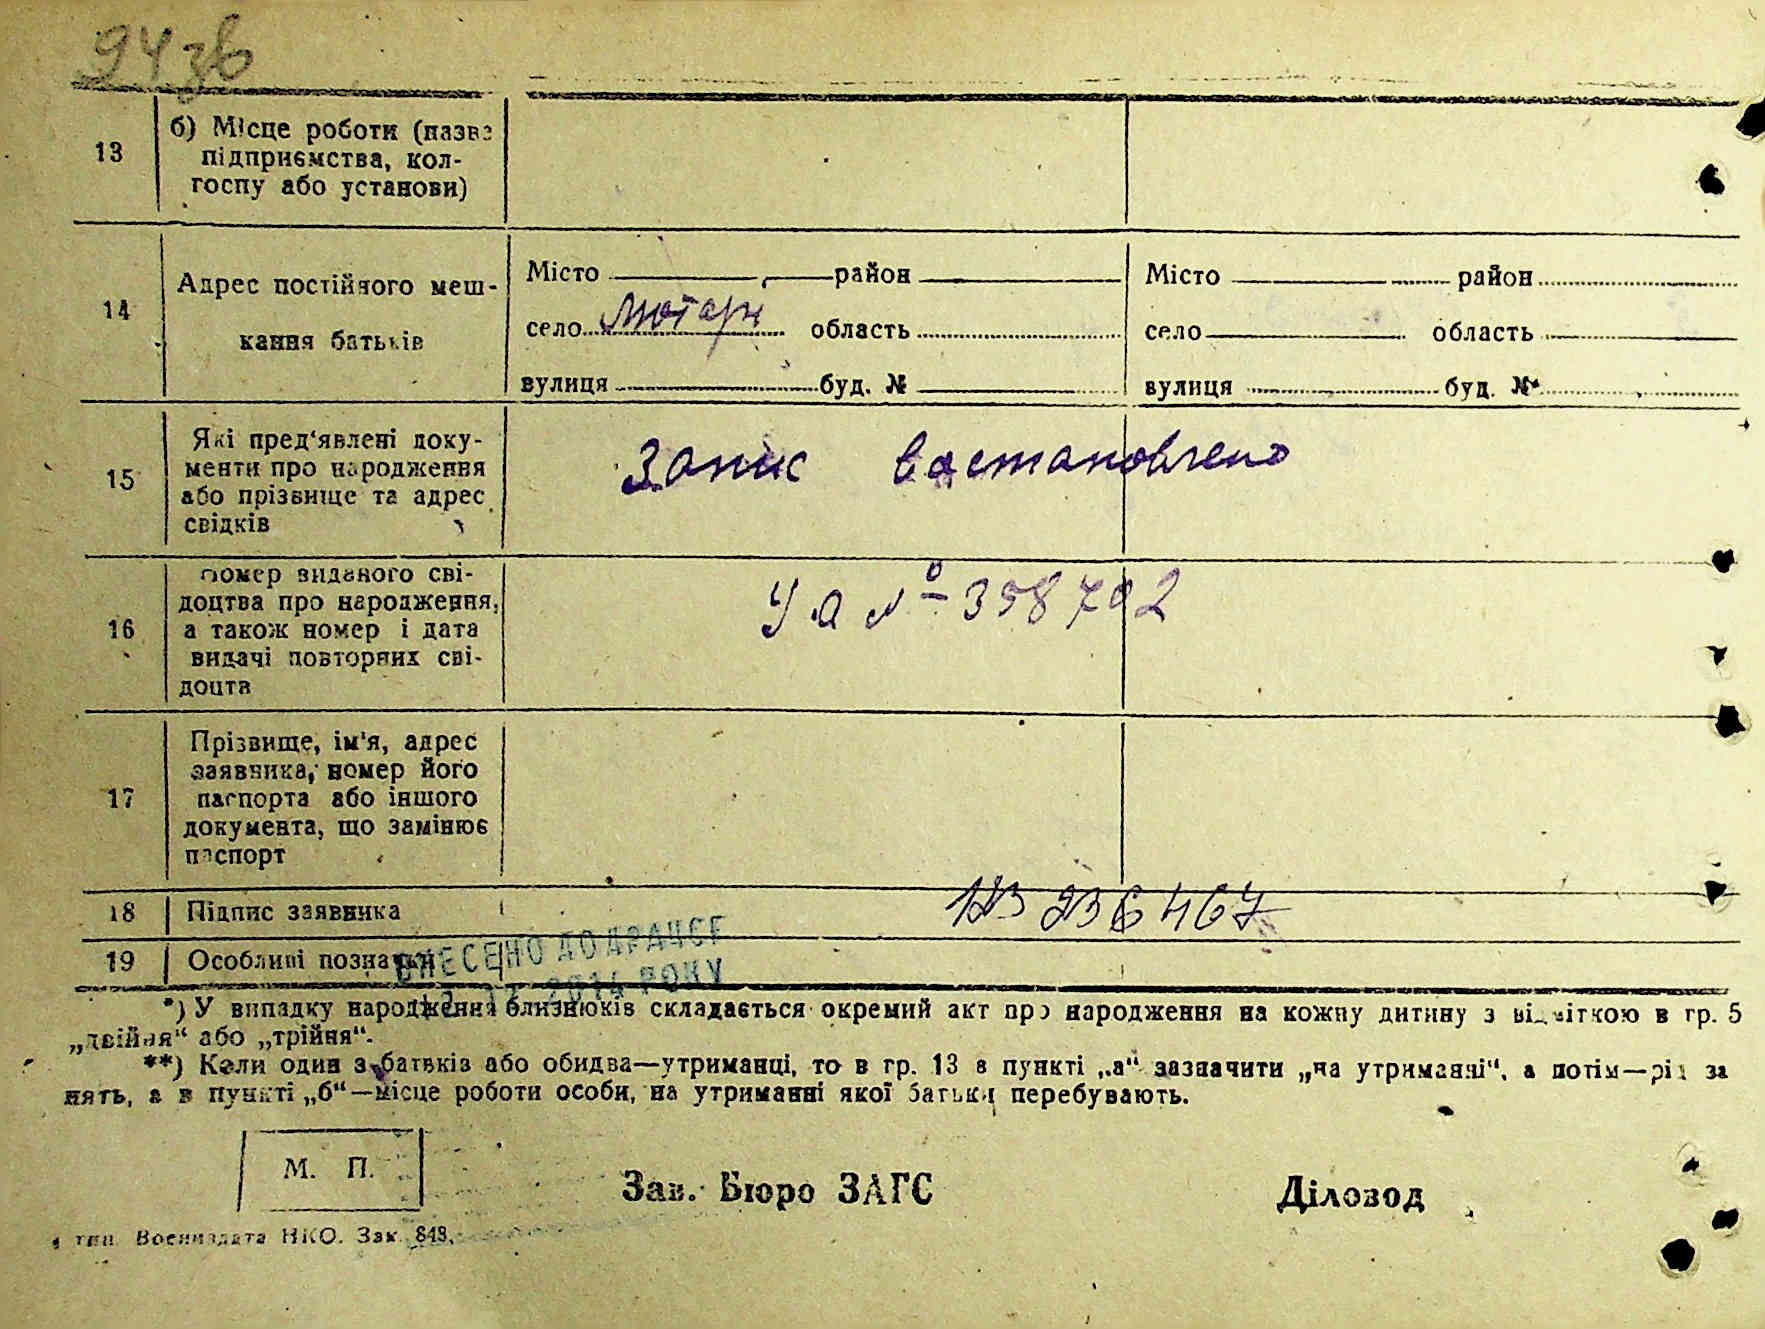 94зв
13
б) Місце роботи (назва
підприємства, кол-
госпу або установи)
14
Адрес постійного меш-
кання батьків
Місто район
село Лютарн область
вулиця буд. №
Місто район
село область
вулиця буд. №
15
Які пред'явлені доку-
менти про народження
або прізвище та адрес
свідків
Запис востановлено
16
номер виданого сві-
доцтва про народження,
а також номер і дата
видачі повторних сві-
доцтв
Уа № 358702
17
Прізвище, ім'я, адрес
заявника, номер його
паспорта або іншого
документа, що замінює
паспорт
18
Підпис заявника
236467
19
Особливі познач
ВНЕСЕНО ДО ДРАЦСГ
2014 РОКУ
*) У випадку народження близнюків складається окремий акт про народження на кожну дитину з відміткою в гр. 5
„двійня“ або „трійня“.
**) Коли один з батьків або обидва—утриманці, то в гр. 13 в пункті „а“ зазначити „на утриманні“, а потім—рід за
нять, а в пункті „б“—місце роботи особи, на утриманні якої батьки перебувають.
М. П.
Зав. Бюро ЗАГС
Діловод
тип. Воениздата НКО. Зак. 848.